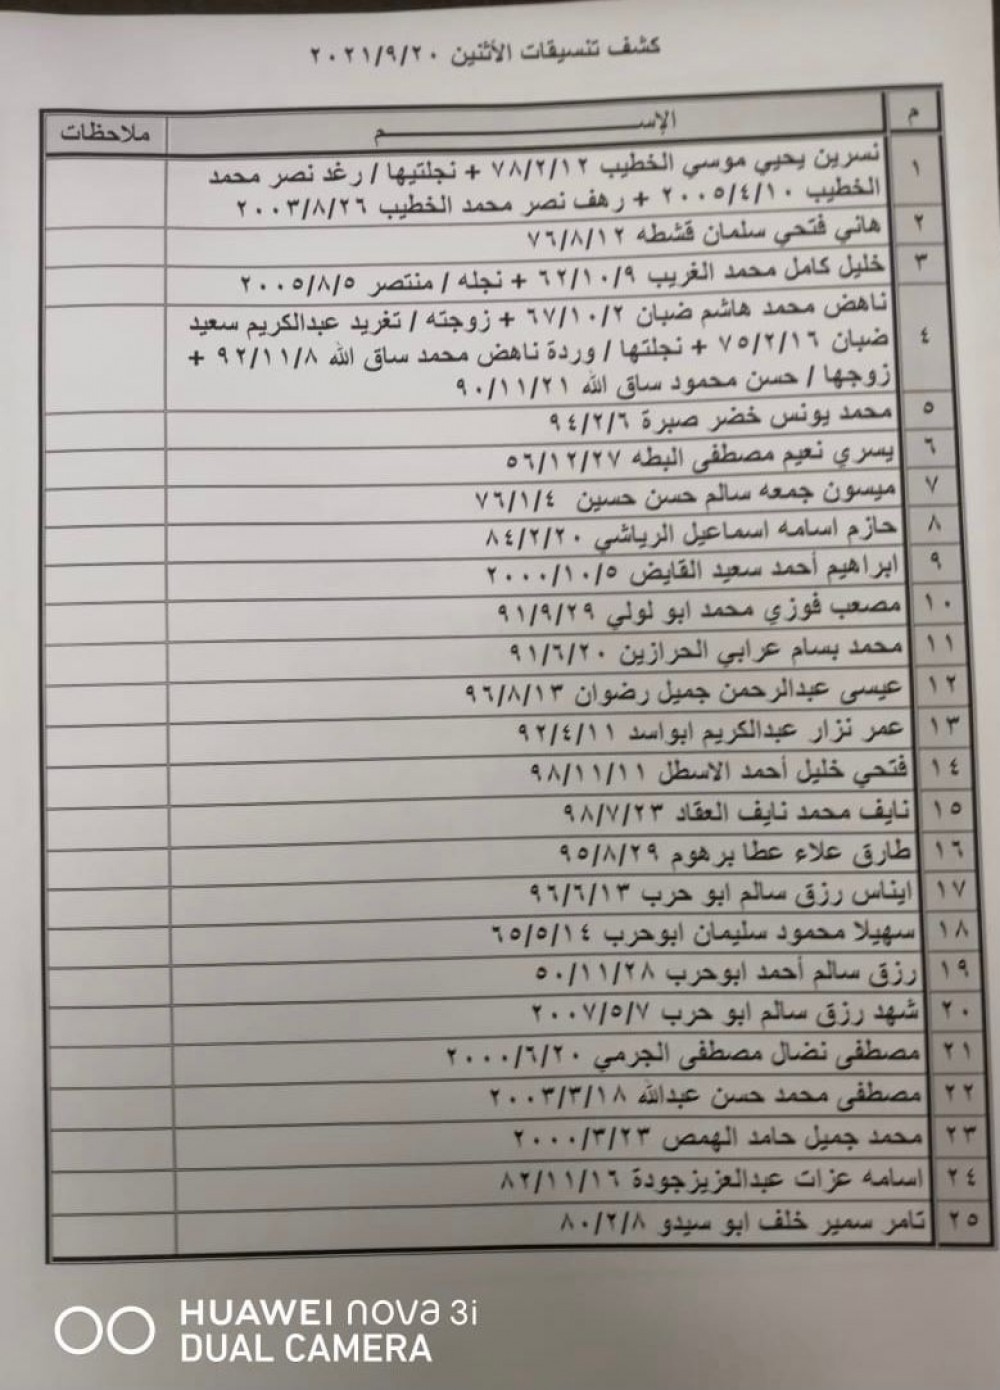 كشف تنسيقات الأثنين ٢٠٢١/٩/٢٠
م الإســـــــــــــم ملاحظات
١ نسرين يحيي موسي الخطيب ٧٨/٢/١٢ + نجلتيها / رغد نصر محمد
الخطيب ٢٠٠٥/٤/١٠ + رهف نصر محمد الخطيب ٢٠٠٣/٨/٢٦
٢ هاني فتحي سلمان قشطه ٧٦/٨/١٢
٣ خليل كامل محمد الغريب ٦٢/١٠/٩ + نجله / منتصر ٢٠٠٥/٨/٥
٤ ناهض محمد هاشم ضبان ٦٧/١٠/٢ + زوجته / تغريد عبدالكريم سعيد
ضبان ٧٥/٢/١٦ + نجلتها / وردة ناهض محمد ساق الله ٩٢/١١/٨ +
زوجها / حسن محمود ساق الله ٩٠/١١/٢١
٥ محمد يونس خضر صبرة ٩٤/٢/٦
٦ يسري نعيم مصطفى البطه ٥٦/١٢/٢٧
٧ ميسون جمعه سالم حسن حسين ٧٦/١/٤
٨ حازم اسامه اسماعيل الرياشي ٨٤/٢/٢٠
٩ ابراهيم أحمد سعيد القايض ٢٠٠٠/١٠/٥
١٠ مصعب فوزي محمد ابو لولي ٩١/٩/٢٩
١١ محمد بسام عرابي الحرازين ٩١/٦/٢٠
١٢ عيسى عبدالرحمن جميل رضوان ٩٦/٨/١٣
١٣ عمر نزار عبدالكريم ابواسد ٩٢/٤/١١
١٤ فتحي خليل أحمد الاسطل ٩٨/١١/١١
١٥ نايف محمد نايف العقاد ٩٨/٧/٢٣
١٦ طارق علاء عطا برهوم ٩٥/٨/٢٩
١٧ ايناس رزق سالم ابو حرب ٩٦/٦/١٣
١٨ سهيلا محمود سليمان ابوحرب ٦٥/٥/١٤
١٩ رزق سالم أحمد ابوحرب ٥٠/١١/٢٨
٢٠ شهد رزق سالم ابو حرب ٢٠٠٧/٥/٧
٢١ مصطفى نضال مصطفى الجرمي ٢٠٠٠/٦/٢٠
٢٢ مصطفى محمد حسن عبدالله ٢٠٠٣/٣/١٨
٢٣ محمد جميل حامد الهمص ٢٠٠٠/٣/٢٣
٢٤ اسامه عزات عبدالعزيزجودة ٨٢/١١/١٦
٢٥ تامر سمير خلف ابو سيدو ٨٠/٢/٨
HUAWEI nova 3i
DUAL CAMERA